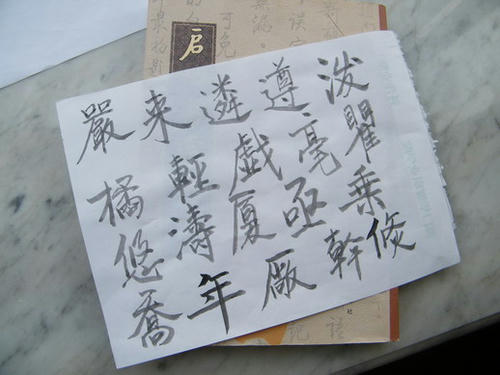 嚴来遴遵泼
橘輕戯毫瞿
悠濤厦亟乘
喬年厰幹倏
启